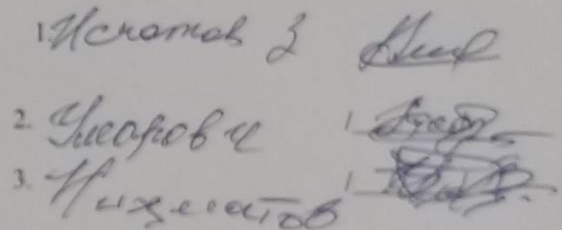 1. Исматов З
2. Умаров И
3. Нигматов